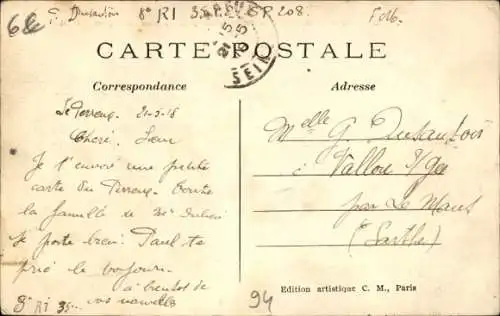 66 G. Dusautoir 8e RI 35 SP 208. Feb.
21 -5 15
SEINE
CARTE POSTALE
Correspondance
Adresse
Le Perreux, 21-5-15
Chère Sœur
Je t'envoie une petite
carte du Perreux. Toute
la famille de Me Julien
se porte bien. Paul te
prie le bonjour.
à bientôt de
vos nouvelles
Melle G Dusautoir
à Vallon s/Gée
par Le Mans
(Sarthe)
Edition artistique C. M., Paris
8e RI 35
94